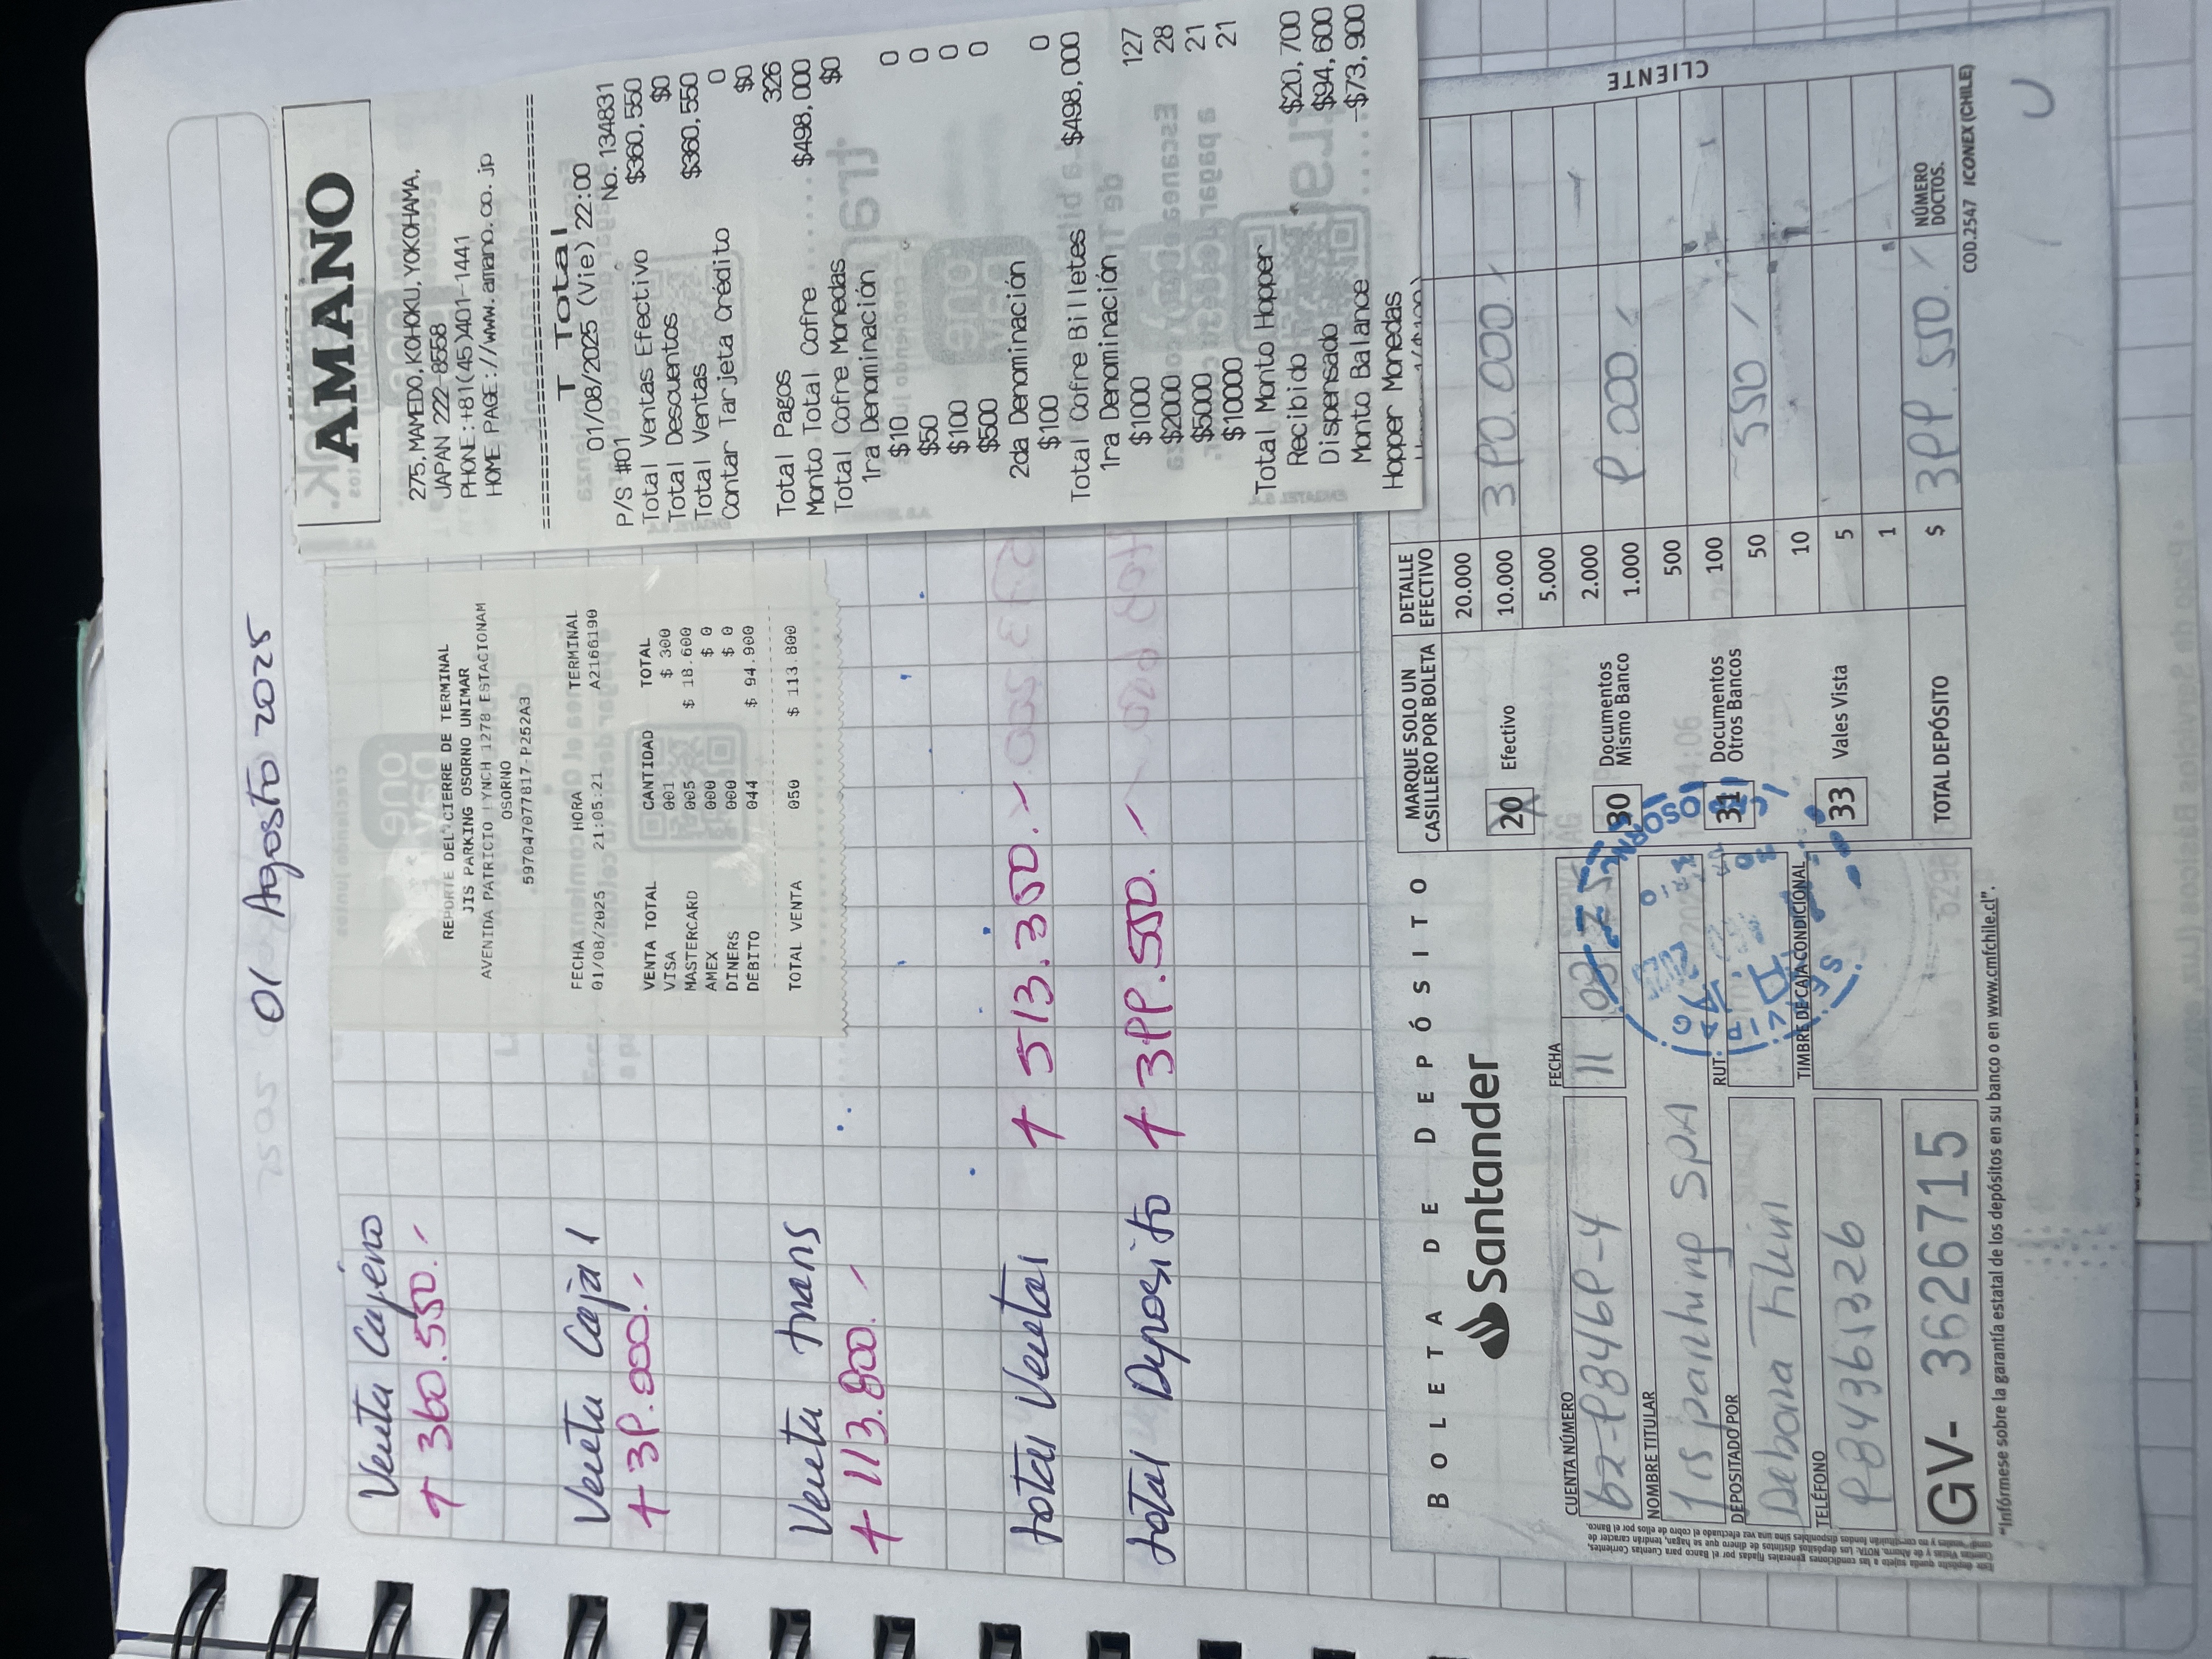 01 Agosto 2025
Venta Cajero
+ 360.550.-
Venta Caja 1
+ 39.000.-
Venta trans
+ 113.800.-
total Ventas + 513.350.-
total Deposito + 399.550.-
REPORTE DEL CIERRE DE TERMINAL
JIS PARKING OSORNO UNIMAR
AVENIDA PATRICIO LYNCH 1278 ESTACIONAM
OSORNO
597047077817-P252A3
FECHA HORA TERMINAL
01/08/2025 21:05:21 A2166190
VENTA TOTAL CANTIDAD TOTAL
VISA 001 $ 300
MASTERCARD 005 $ 18.600
AMEX 000 $ 0
DINERS 000 $ 0
DEBITO 044 $ 94.900
TOTAL VENTA 050 $ 113.800
AMANO
275, MAMEDO, KOHOKU, YOKOHAMA,
JAPAN 222-8558
PHONE:+81(45)401-1441
HOME PAGE://www.amano.co.jp
T Total
01/08/2025 (Vie) 22:00
P/S #01 No.134831
Total Ventas Efectivo $360,550
Total Descuentos $0
Total Ventas $360,550
Contar Tarjeta Crédito 0
$0
Total Pagos 326
Monto Total Cofre $498,000
Total Cofre Monedas $0
1ra Denominación
$10 0
$50 0
$100 0
$500 0
2da Denominación
$100 0
Total Cofre Billetes $498,000
1ra Denominación
$1000 127
$2000 28
$5000 21
$10000 21
Total Monto Hopper
Recibido $20,700
Dispensado $94,600
Monto Balance -$73,900
Hopper Monedas
BOLETA DE DEPÓSITO
Santander
CUENTA NÚMERO
62-983469-4
FECHA
11 08
NOMBRE TITULAR
Jis parking SPA
RUT.
DEPOSITADO POR
Debora
TELÉFONO
984365326
TIMBRE DE CAJA CONDICIONAL
GV- 3626715
MARQUE SOLO UN
CASILLERO POR BOLETA
20 Efectivo
30 Documentos
Mismo Banco
31 Documentos
Otros Bancos
33 Vales Vista
DETALLE
EFECTIVO
20.000
10.000 390.000.-
5.000
2.000
1.000 9.000.-
500
100
50 550.-
10
5
1
TOTAL DEPÓSITO $ 399.550.-
NÚMERO
DOCTOS.
CLIENTE
COD.2547 ICONEX (CHILE)
"Infórmese sobre la garantía estatal de los depósitos en su banco o en www.cmfchile.cl".